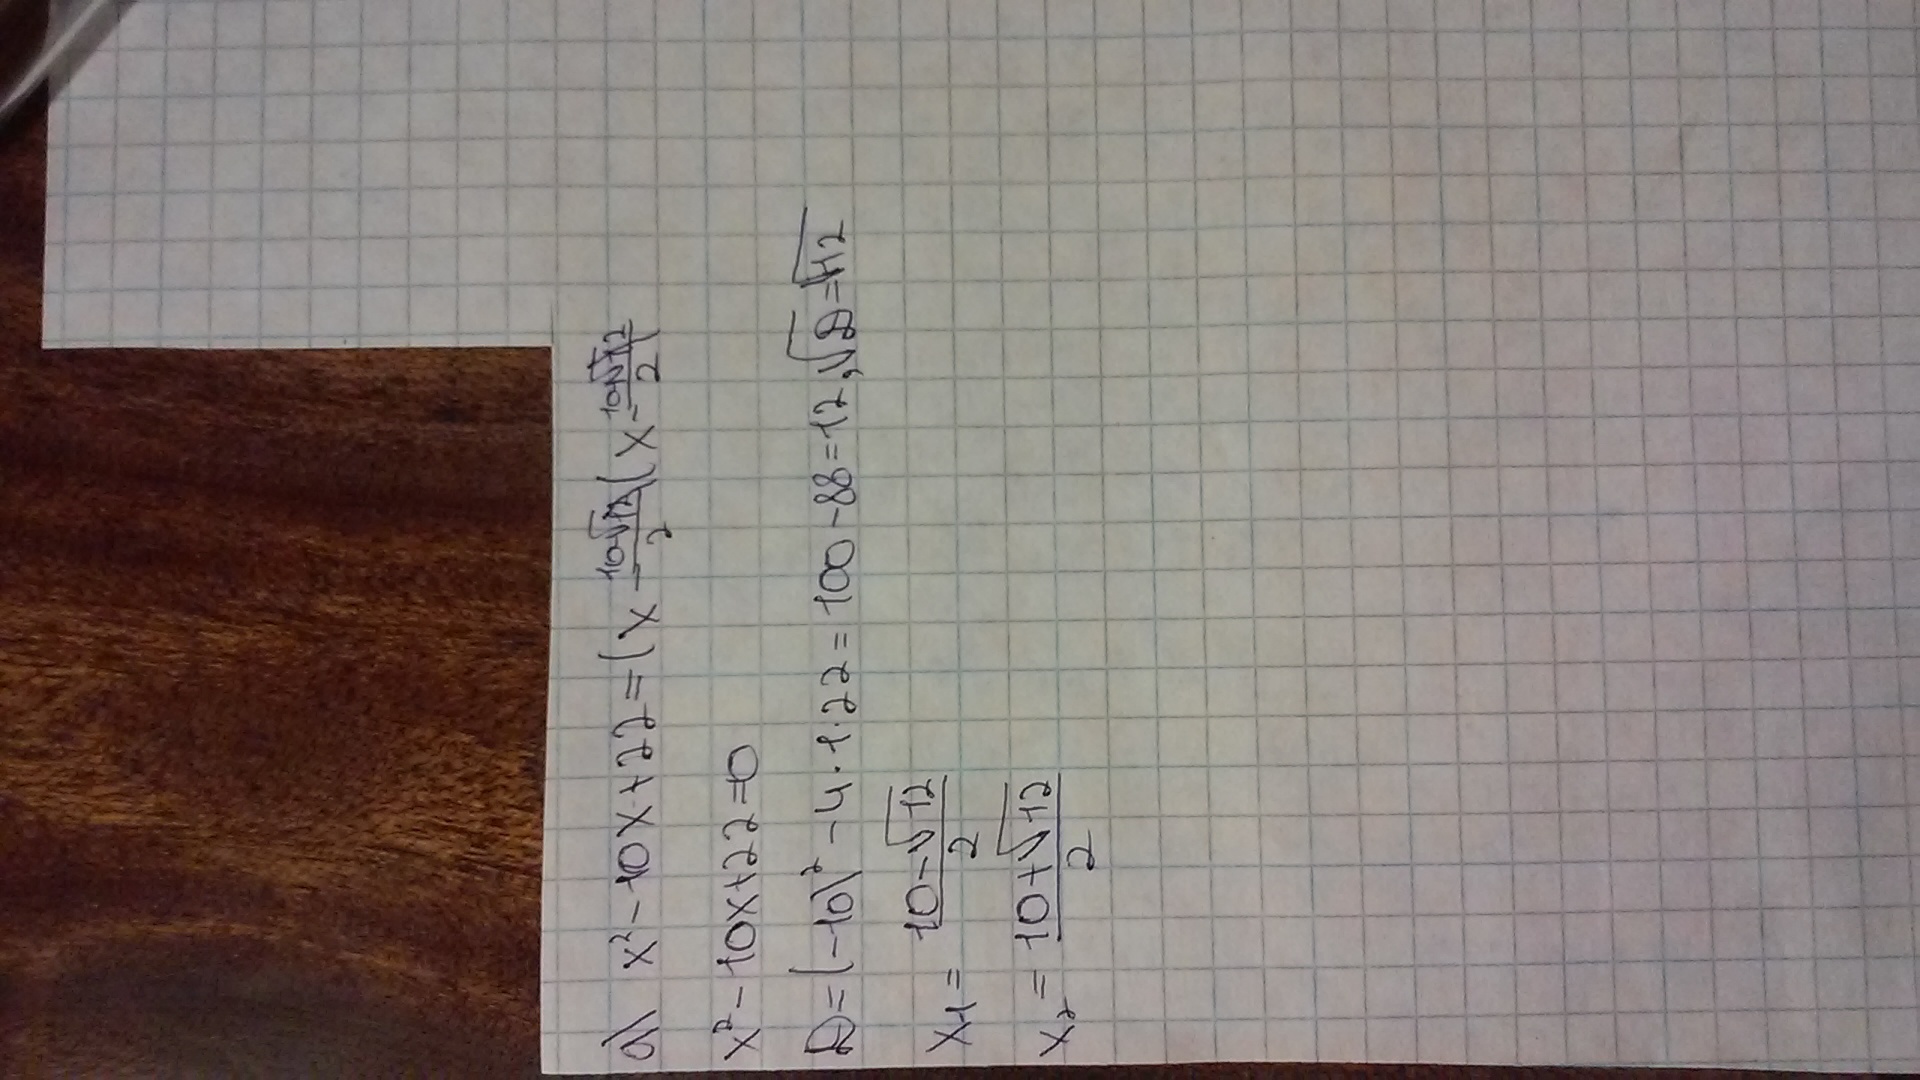 а) x² - 10x + 22 = (x - (10-√12)/2)(x - (10+√12)/2)
x² - 10x + 22 = 0
D = (-10)² - 4 · 1 · 22 = 100 - 88 = 12, √D = √12
x₁ = (10 - √12)/2
x₂ = (10 + √12)/2